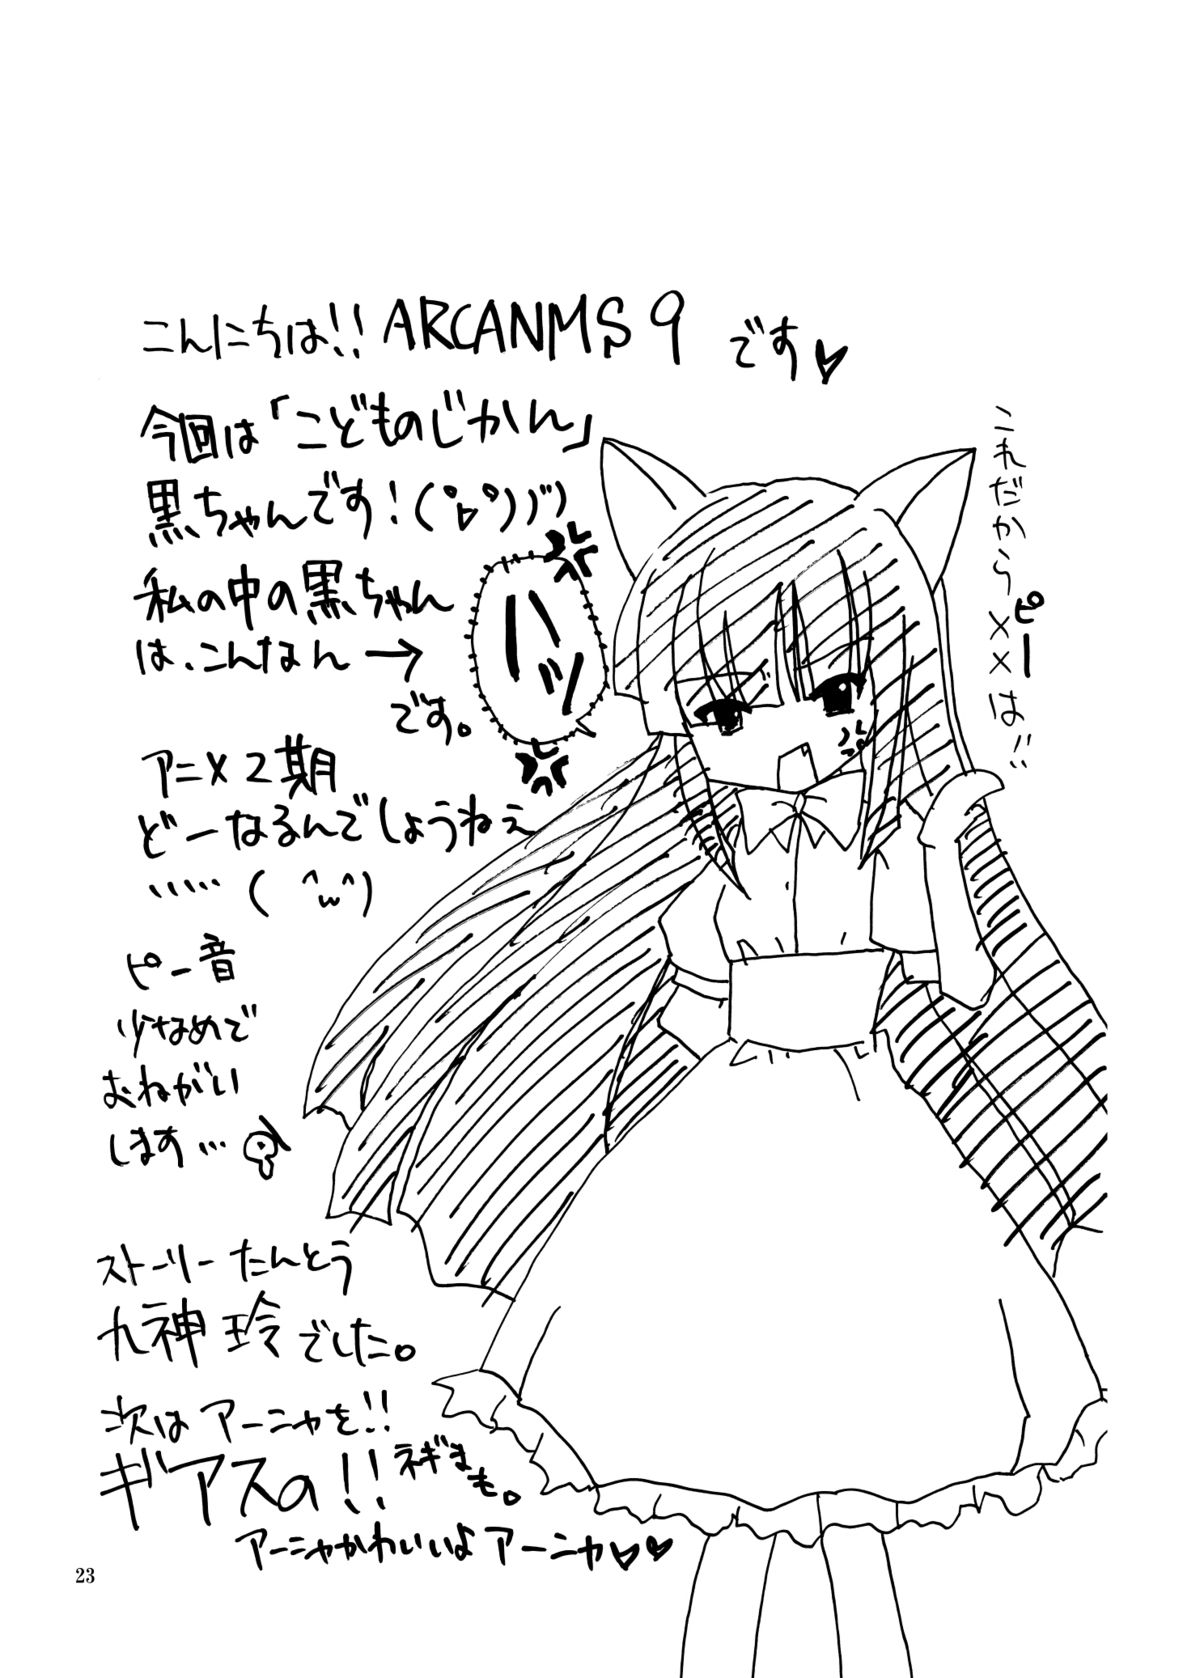 こんにちは!! ARCANMS 9 です
今回は「こどものじかん」
黒ちゃんです!(°▽°)))
私の中の黒ちゃん
は、こんなん→
です。
ハッ
これだから××は!!
ピー
アニメ2期
どーなるんでしょうねぇ
……( ^w^)
ピー音
少なめで
おねがい
します…
ストーリーたんとう
九神 玲でした。
次はアーニャを!!
ギアスの!! ネギまも。
アーニャかわいいよアーニャ
23